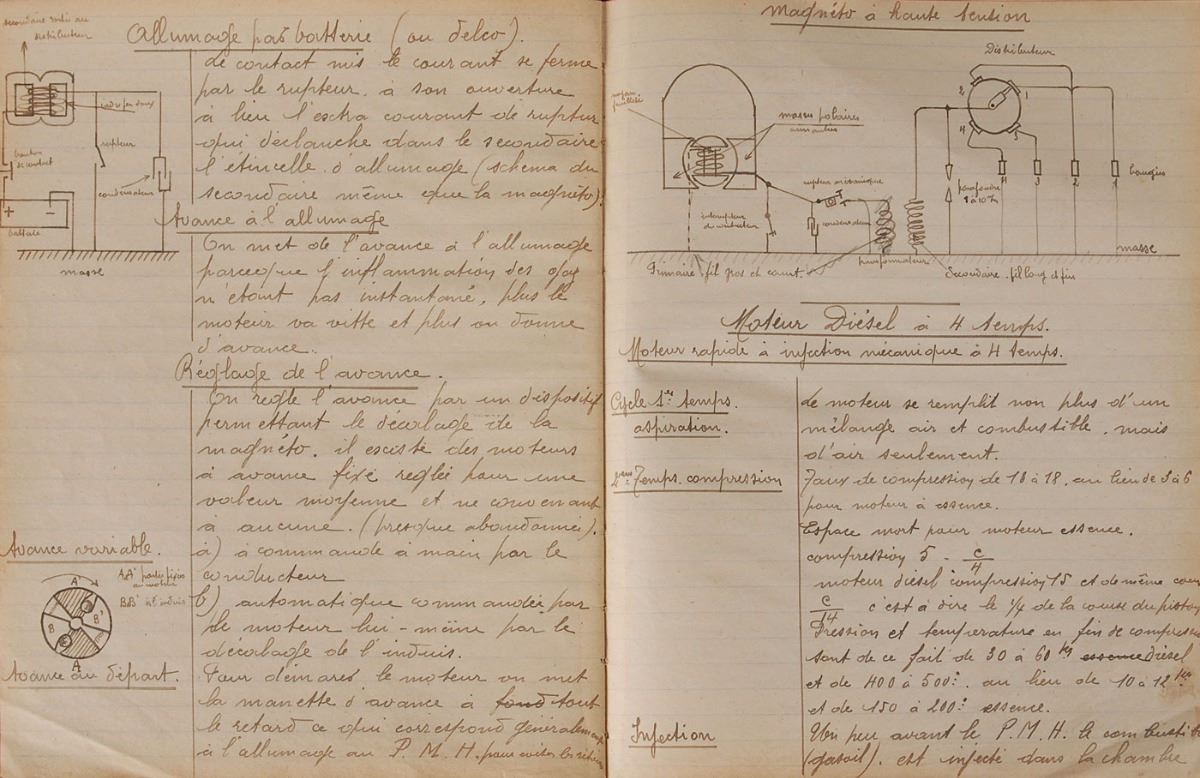 secondaire sortie au
distributeur
Allumage par batterie (ou delco).
Le contact mis le courant se ferme
par le rupteur. à son ouverture
à lieu l'extra courant de ruptur
qui déclanche dans le secondaire
l'étincelle d'allumage (schema du
secondaire même que la magnéto)
bouton
de contact
rupteur
condensateur
+ -
batterie
masse
Avance à l'allumage
On met de l'avance à l'allumage
parceque l'inflammation des gaz
n'étant pas instantané, plus le
moteur va vitte et plus on donne
d'avance.
Réglage de l'avance.
On regle l'avance par un dispositif
permettant le décalage de la
magnéto. il existe des moteurs
à avance fixe reglée pour une
valeur moyenne et ne convenant
à aucune. (presque abandonnée).
Avance variable.
a) à commande à main par le
conducteur
b) automatique commandée par
le moteur lui-même par le
décalage de l'induis.
AA' parties fixes
au moteur
BB' à l'induis
A'
B
B'
A
Avance au départ.
Pour démarer le moteur on met
la manette d'avance à fond tout
le retard ce qui correspond généralement
à l'allumage au P.M.H. pour éviter les retours
Magnéto à haute tension
Distributeur
noyau
feuilleté
masses polaires
2
1
4
3
rupteur mécanique
condensateur
interrupteur
parafoudre
4 3 2 1
bougies
masse
Primaire fil gros et court.
transformateur
Secondaire. fil long et fin
Moteur Diésel à 4 temps.
Moteur rapide à injection mécanique à 4 temps.
Cycle 1er temps.
aspiration.
Le moteur se remplit non plus d'un
mélange air et combustible. mais
d'air seulement.
2eme Temps. compression
Taux de compression de 13 à 18. au lieu de 5 à 6
pour moteur à essence.
Espace mort pour moteur essence.
compression 5 - C/4
moteur diesel compression 15 et de même cour
C/14 c'est à dire le 1/14 de la course du piston
Pression et température en fin de compression
sont de ce fait de 30 à 60 kgs essence diésel
et de 400 à 500°. au lieu de 10 à 12 kgs
et de 150 à 200° essence.
Injection
Un peu avant le P.M.H. le combustib
(gasoil). est injecté dans la chambre